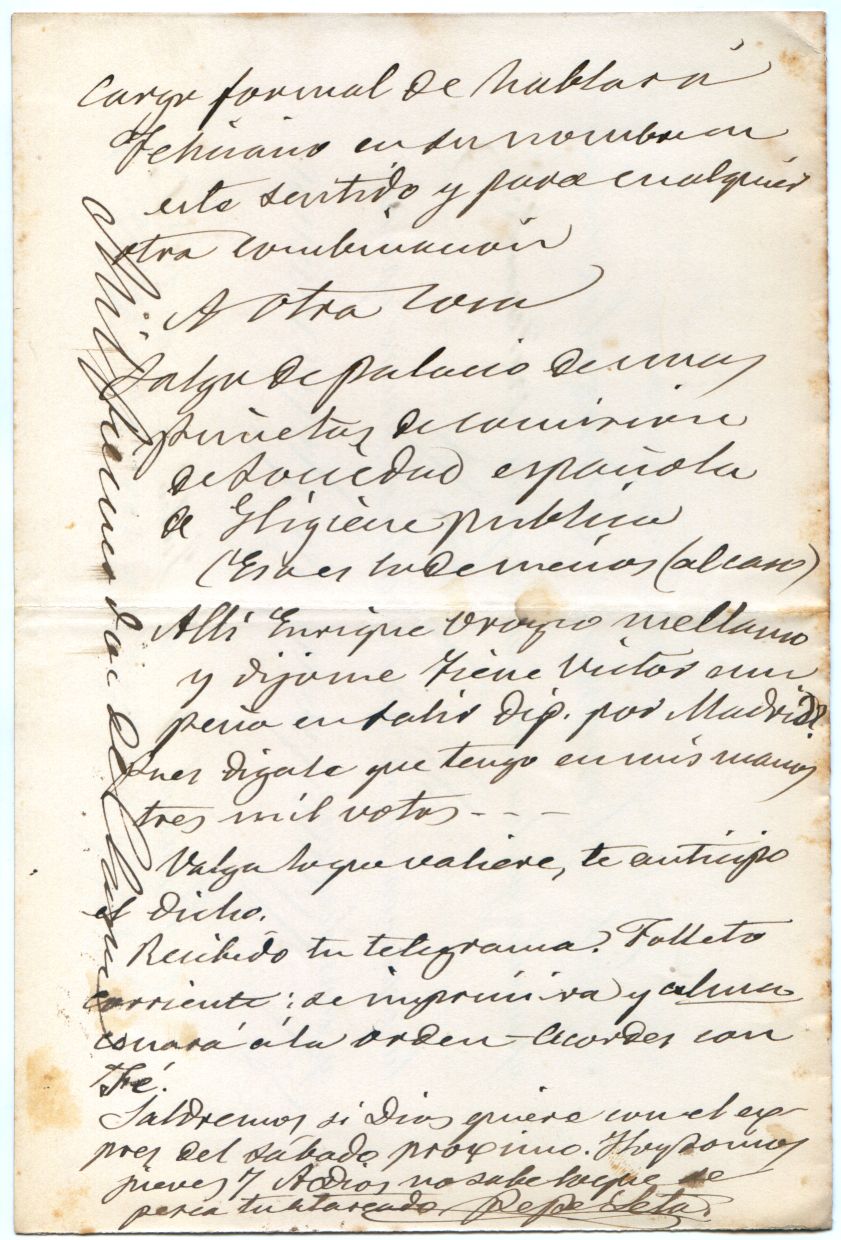 cargo formal de hablar á
Feliciano en su nombre en
este sentido y para cualquier
otra combinación
A otra cosa
Salgo de palacio de unas
puñetas de comisión
de Sociedad española
de Higiene publica
(Eso es lo de menos (al caso)
Allí Enrique me llamo
y dijome Tiene Victor em
peño en salir dip. por Madrid?
pues digale que tengo en mis manos
tres mil votos - - -
Valga lo que valiere, te anticipo
el dicho.
Recibido tu telegrama. Folleto
corriente: se imprimira y alma
cenará á la orden - Acordes con
Fé.
Saldremos si Dios quiere con el ex-
pres del sábado proximo. Hoy somos
jueves 7 Adios no sabe lo que se
pesca tu atareado Pepe